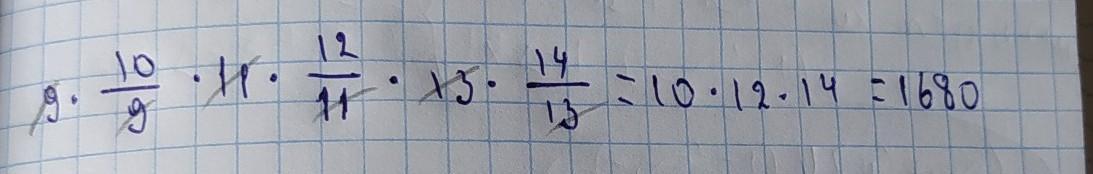 9 · 10/9 · 11 · 12/11 · 13 · 14/13 = 10 · 12 · 14 = 1680